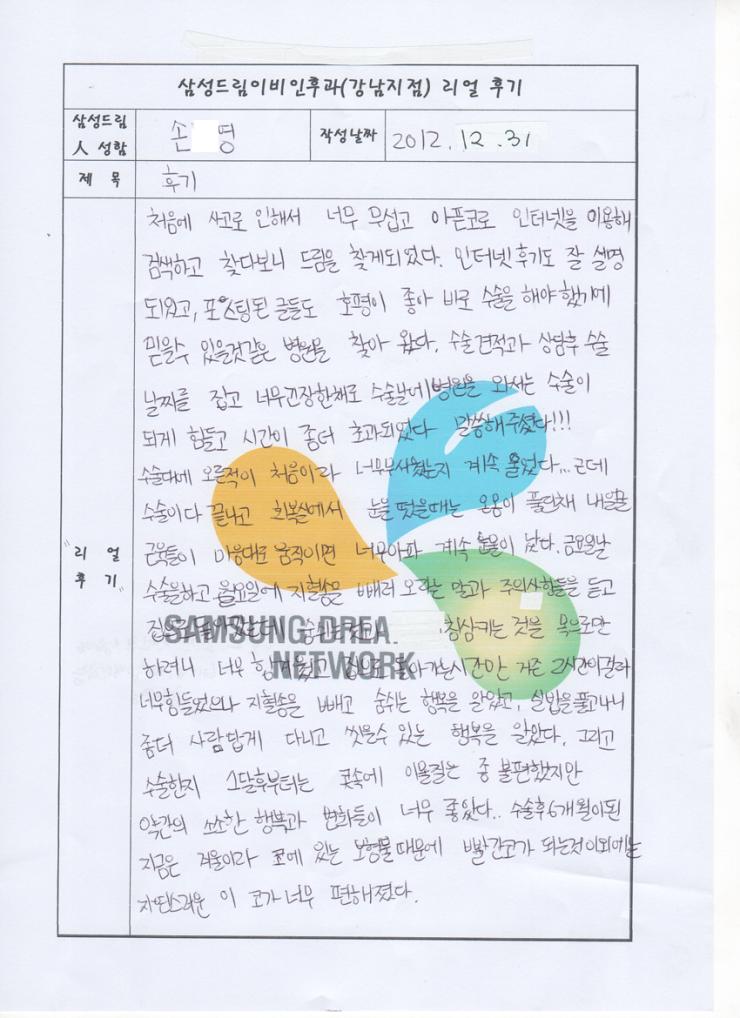 삼성드림이비인후과(강남지점) 리얼 후기
삼성드림
人 성함
손 명
작성날짜
2012. 12. 31
제 목
후기
리 얼
후 기
처음에 사고로 인해서 너무 무섭고 아픈코로 인터넷을 이용해
검색하고 찾다보니 드림을 찾게되었다. 인터넷후기도 잘 설명
되있고, 포스팅된 글들도 호평이 좋아 바로 수술을 해야했기에
믿을수 있을것같은 병원을 찾아 왔다. 수술견적과 상담후 수술
날짜를 잡고 너무긴장한채로 수술날에 병원을 와서는 수술이
되게 힘들고 시간이 좀더 초과되었다 말씀해주셨다!!!
수술대에 오른적이 처음이라 계속 울었다... 근데
수술이다 끝나고 회복실에서 눈을 떴을때는 온몸이 풀린채
근육들이 마음대로 움직이면 너무아파 계속 눈물이 났다. 금요일날
수술을하고 월요일에 지혈솜을 빼러 오라는 말과 주의사항들을 듣고
것을 목으로만
하려니 너무 2시간이걸려
너무힘들었으나 지혈솜을 빼고 숨쉬는 행복을 알았고, 실밥을풀고나니
좀더 사람답게 다니고 씻을수 있는 행복을 알았다. 그리고
수술한지 1달후부터는 콧속에 이물질은 좀 불편했지만
약간의 쏘쏘한 행복과 변화들이 너무 좋았다.. 수술후6개월이된
지금은 겨울이라 코에 있는 보형물때문에 빨간코가 되는것이외에는
자연스러운 이 코가너무 편해졌다.
SAMSUNG DREA.
NETWORK